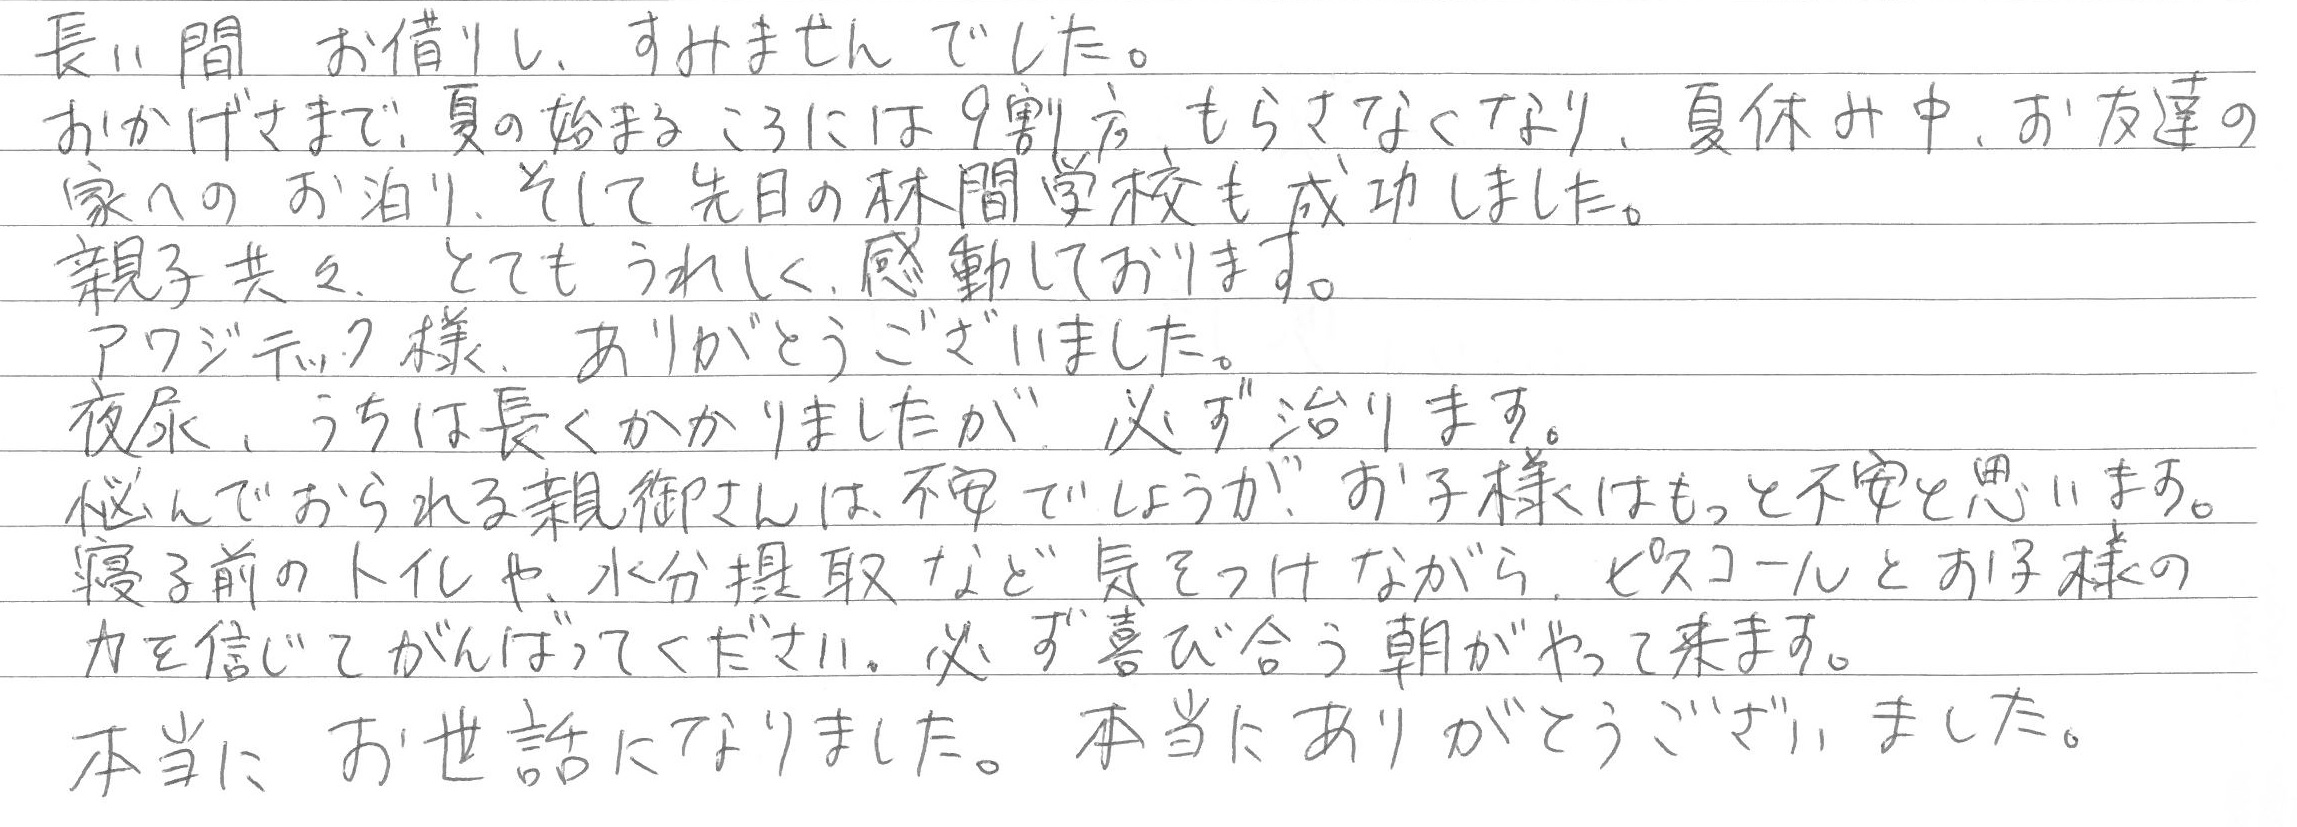 長い間 お借りし、すみませんでした。
おかげさまで、夏の始まるころには9割方、もらさなくなり、夏休み中、お友達の
家へのお泊り、そして先日の林間学校も成功しました。
親子共々、とてもうれしく、感動しております。
アワジテック様、ありがとうございました。
夜尿、うちは長くかかりましたが、必ず治ります。
悩んでおられる親御さんは、不安でしょうが、お子様はもっと不安と思います。
寝る前のトイレや、水分摂取など気をつけながら、ピスコールとお子様の
力を信じてがんばってください。必ず喜び合う朝がやって来ます。
本当に お世話になりました。本当にありがとうございました。